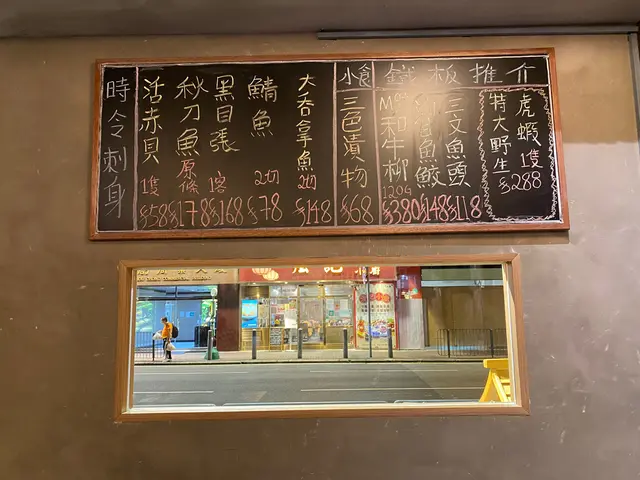 時令刺身
活赤貝
1隻
$58
秋刀魚
原條
$178
黑目張
1客
$168
鯖魚
2切
$78
大吞拿魚
2切
$148
小食
三色漬物
$68
鐵板推介
M9和牛柳
120G
$380
紅甘魚鮫
$148
三文魚頭
$118
特大野生
虎蝦
1隻
$288